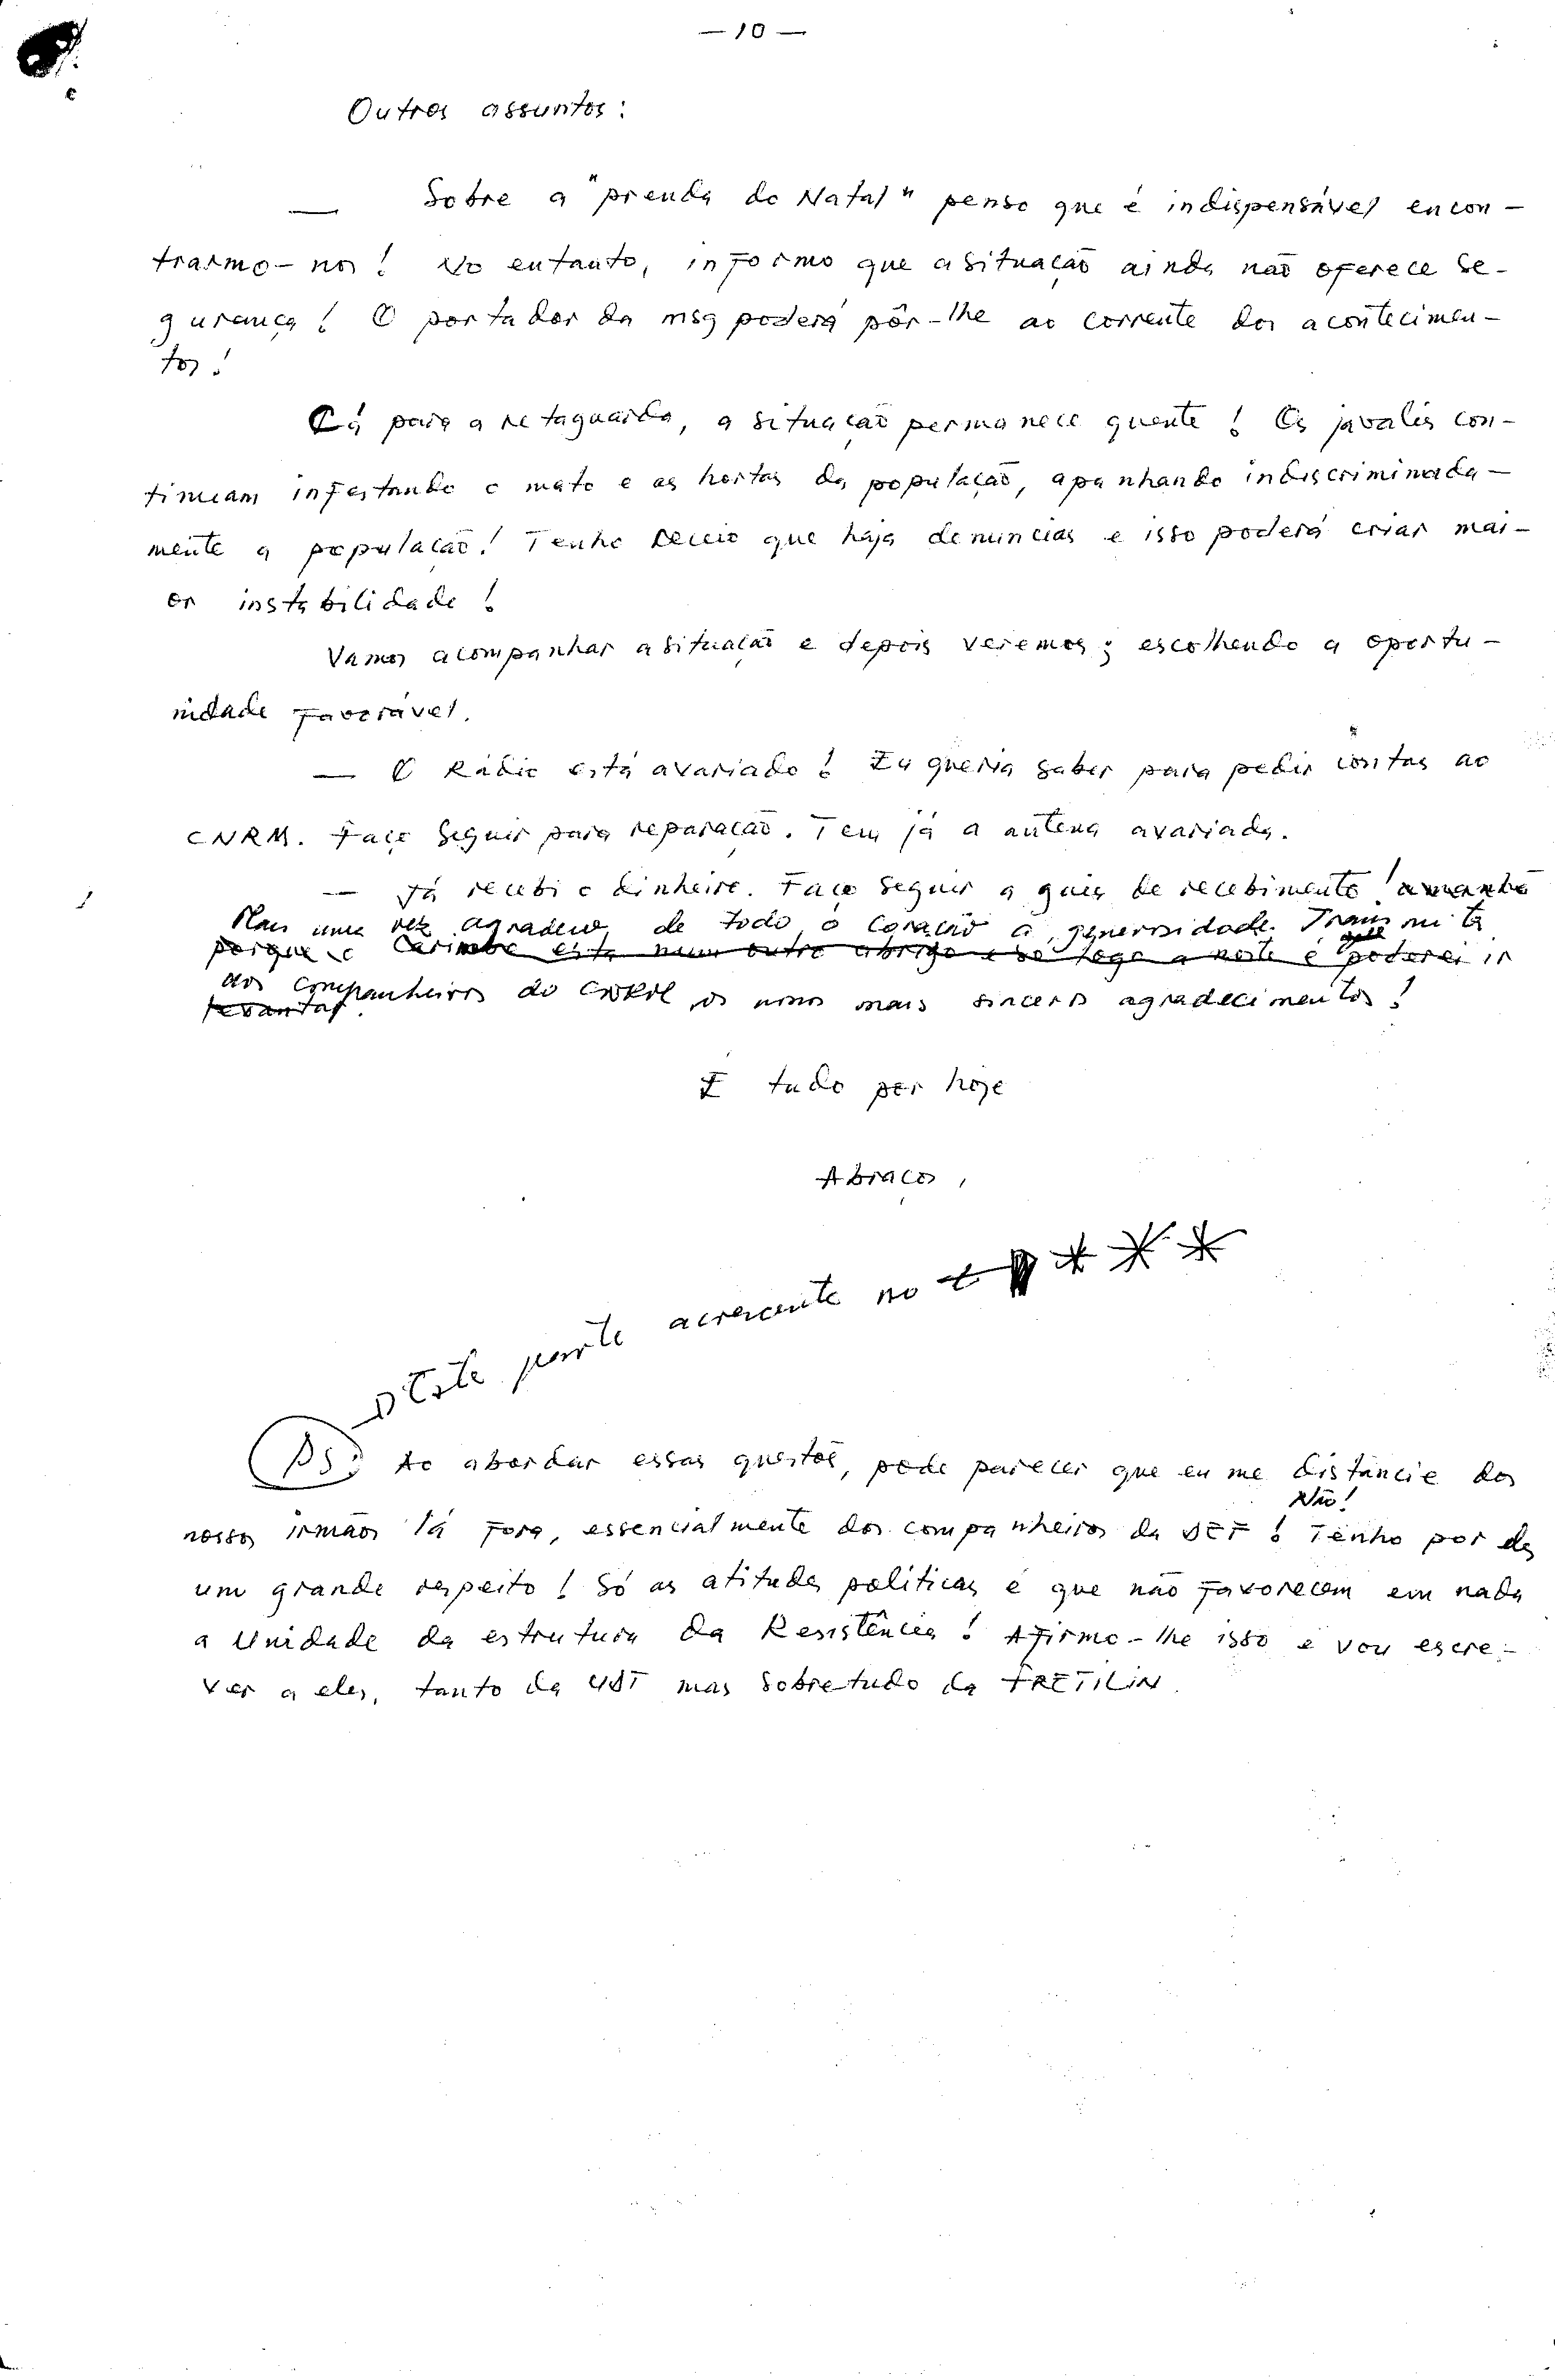 — 10 —
Outros assuntos:
— Sobre a "prenda do Natal" penso que é indispensável encon-
trarmo-nos! No entanto, informo que a situação ainda não oferece se-
gurança! O portador da msg poderá pôr-lhe ao corrente dos acontecimen-
tos!
Cá para a retaguarda, a situação permanece quente! Os javalis con-
tinuam infestando o mato e as hortas da população, apanhando indiscriminada-
mente a população! Tenho receio que haja denúncias e isso poderá criar mai-
or instabilidade!
Vamos acompanhar a situação e depois veremos; escolhendo a oportu-
nidade favorável.
— O Rádio está avariado! Eu queria saber para pedir contas ao
CNRM. Faço seguir para reparação. Tem já a antena avariada.
— Já recebi o dinheiro. Faço seguir a guia de recebimento! amanhã
Mais uma vez agradeço, de todo o coração a generosidade. Transmita
porque o carimbo está num outro abrigo e só logo à noite é que poderei ir
aos companheiros do os meus mais sinceros agradecimentos!
levantar.
É tudo por hoje
Abraços,
Este parte acrescente no
PS: Ao abordar essas questões, pode parecer que eu me distancie dos
Não!
nossos irmãos lá fora, essencialmente dos companheiros da DEF! Tenho por eles
um grande respeito! Só as atitudes políticas é que não favorecem em nada
a Unidade da estrutura da Resistência! Afirmo-lhe isso e vou escre-
ver a eles, tanto da UDT mas sobretudo da FRETILIN.